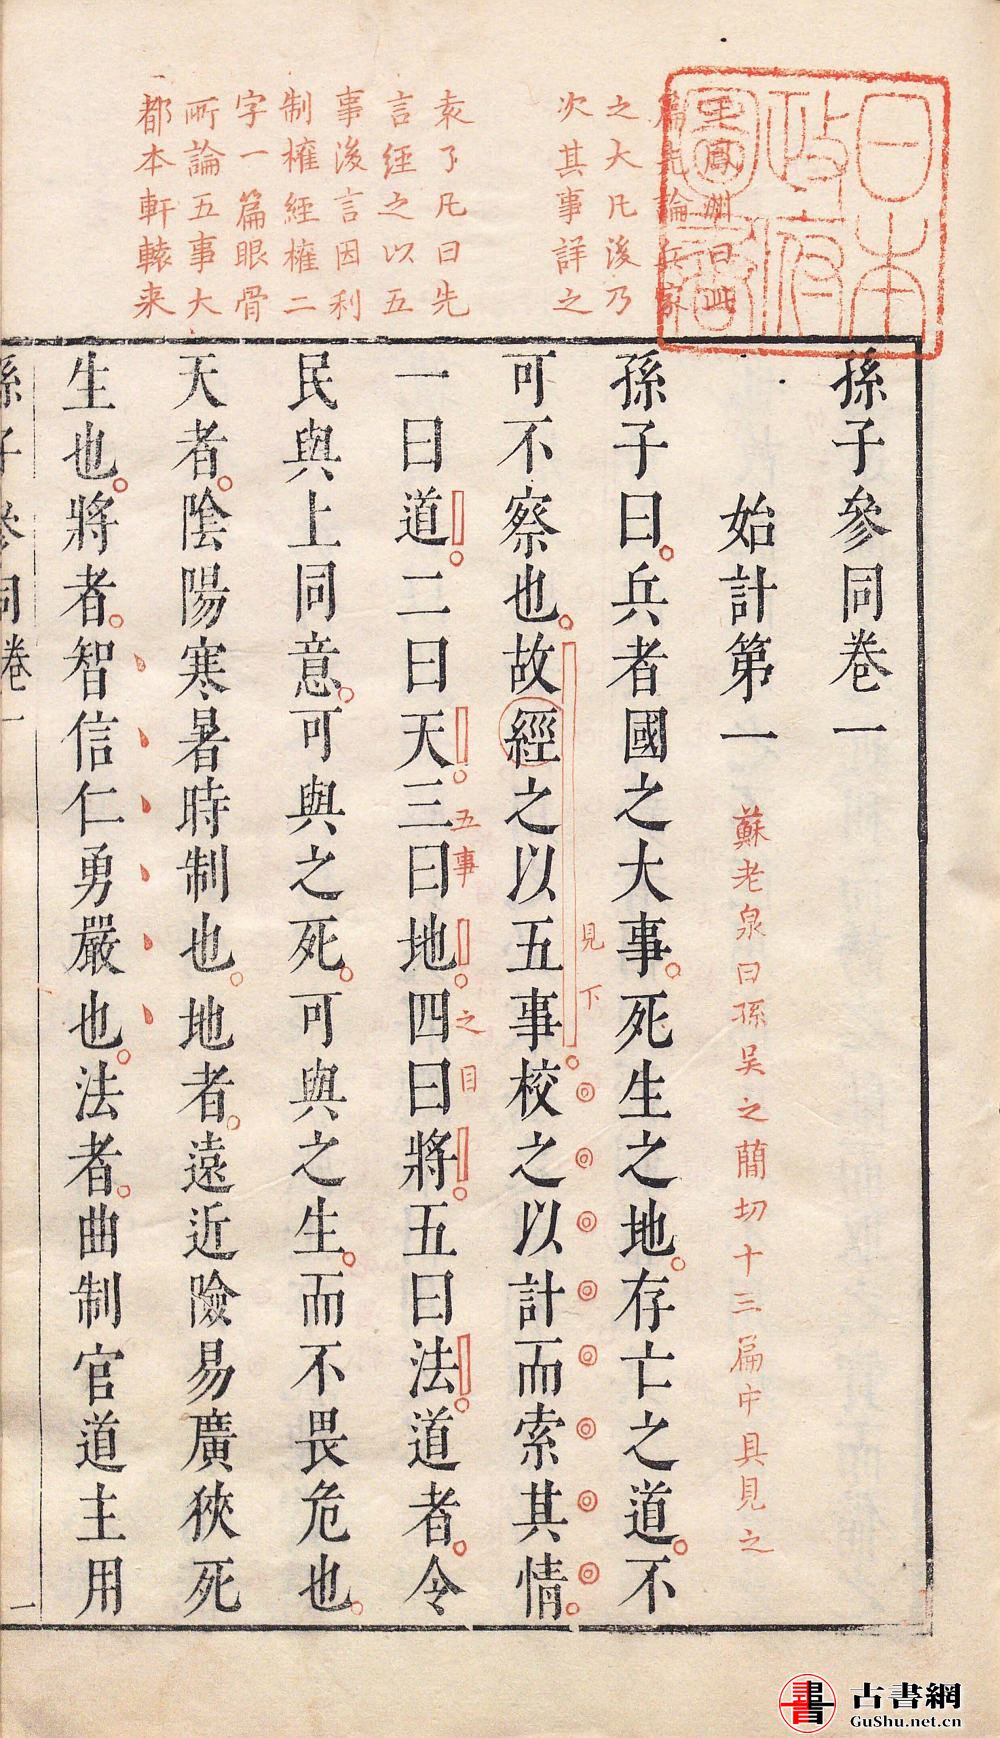 王鳳洲曰此
篇先論兵家
之大凡後乃
次其事詳之
袁了凡曰先
言經之以五
事後言因利
制權經權二
字一篇眼骨
所論五事大
都本軒轅来
日本
政府
圖書
孫子參同卷一
始計第一
蘇老泉曰孫吴之蕳切十三篇中具見之
孫子曰兵者國之大事死生之地存亡之道不
可不察也故經之以五事校之以計而索其情
見下
一曰道二曰天三曰地四曰將五曰法道者令
五事之目
民與上同意可與之死可與之生而不畏危也
天者陰陽寒暑時制也地者遠近險易廣狹死
生也將者智信仁勇嚴也法者曲制官道主用
孫子參同卷一
一
古書網
GuShu.net.cn